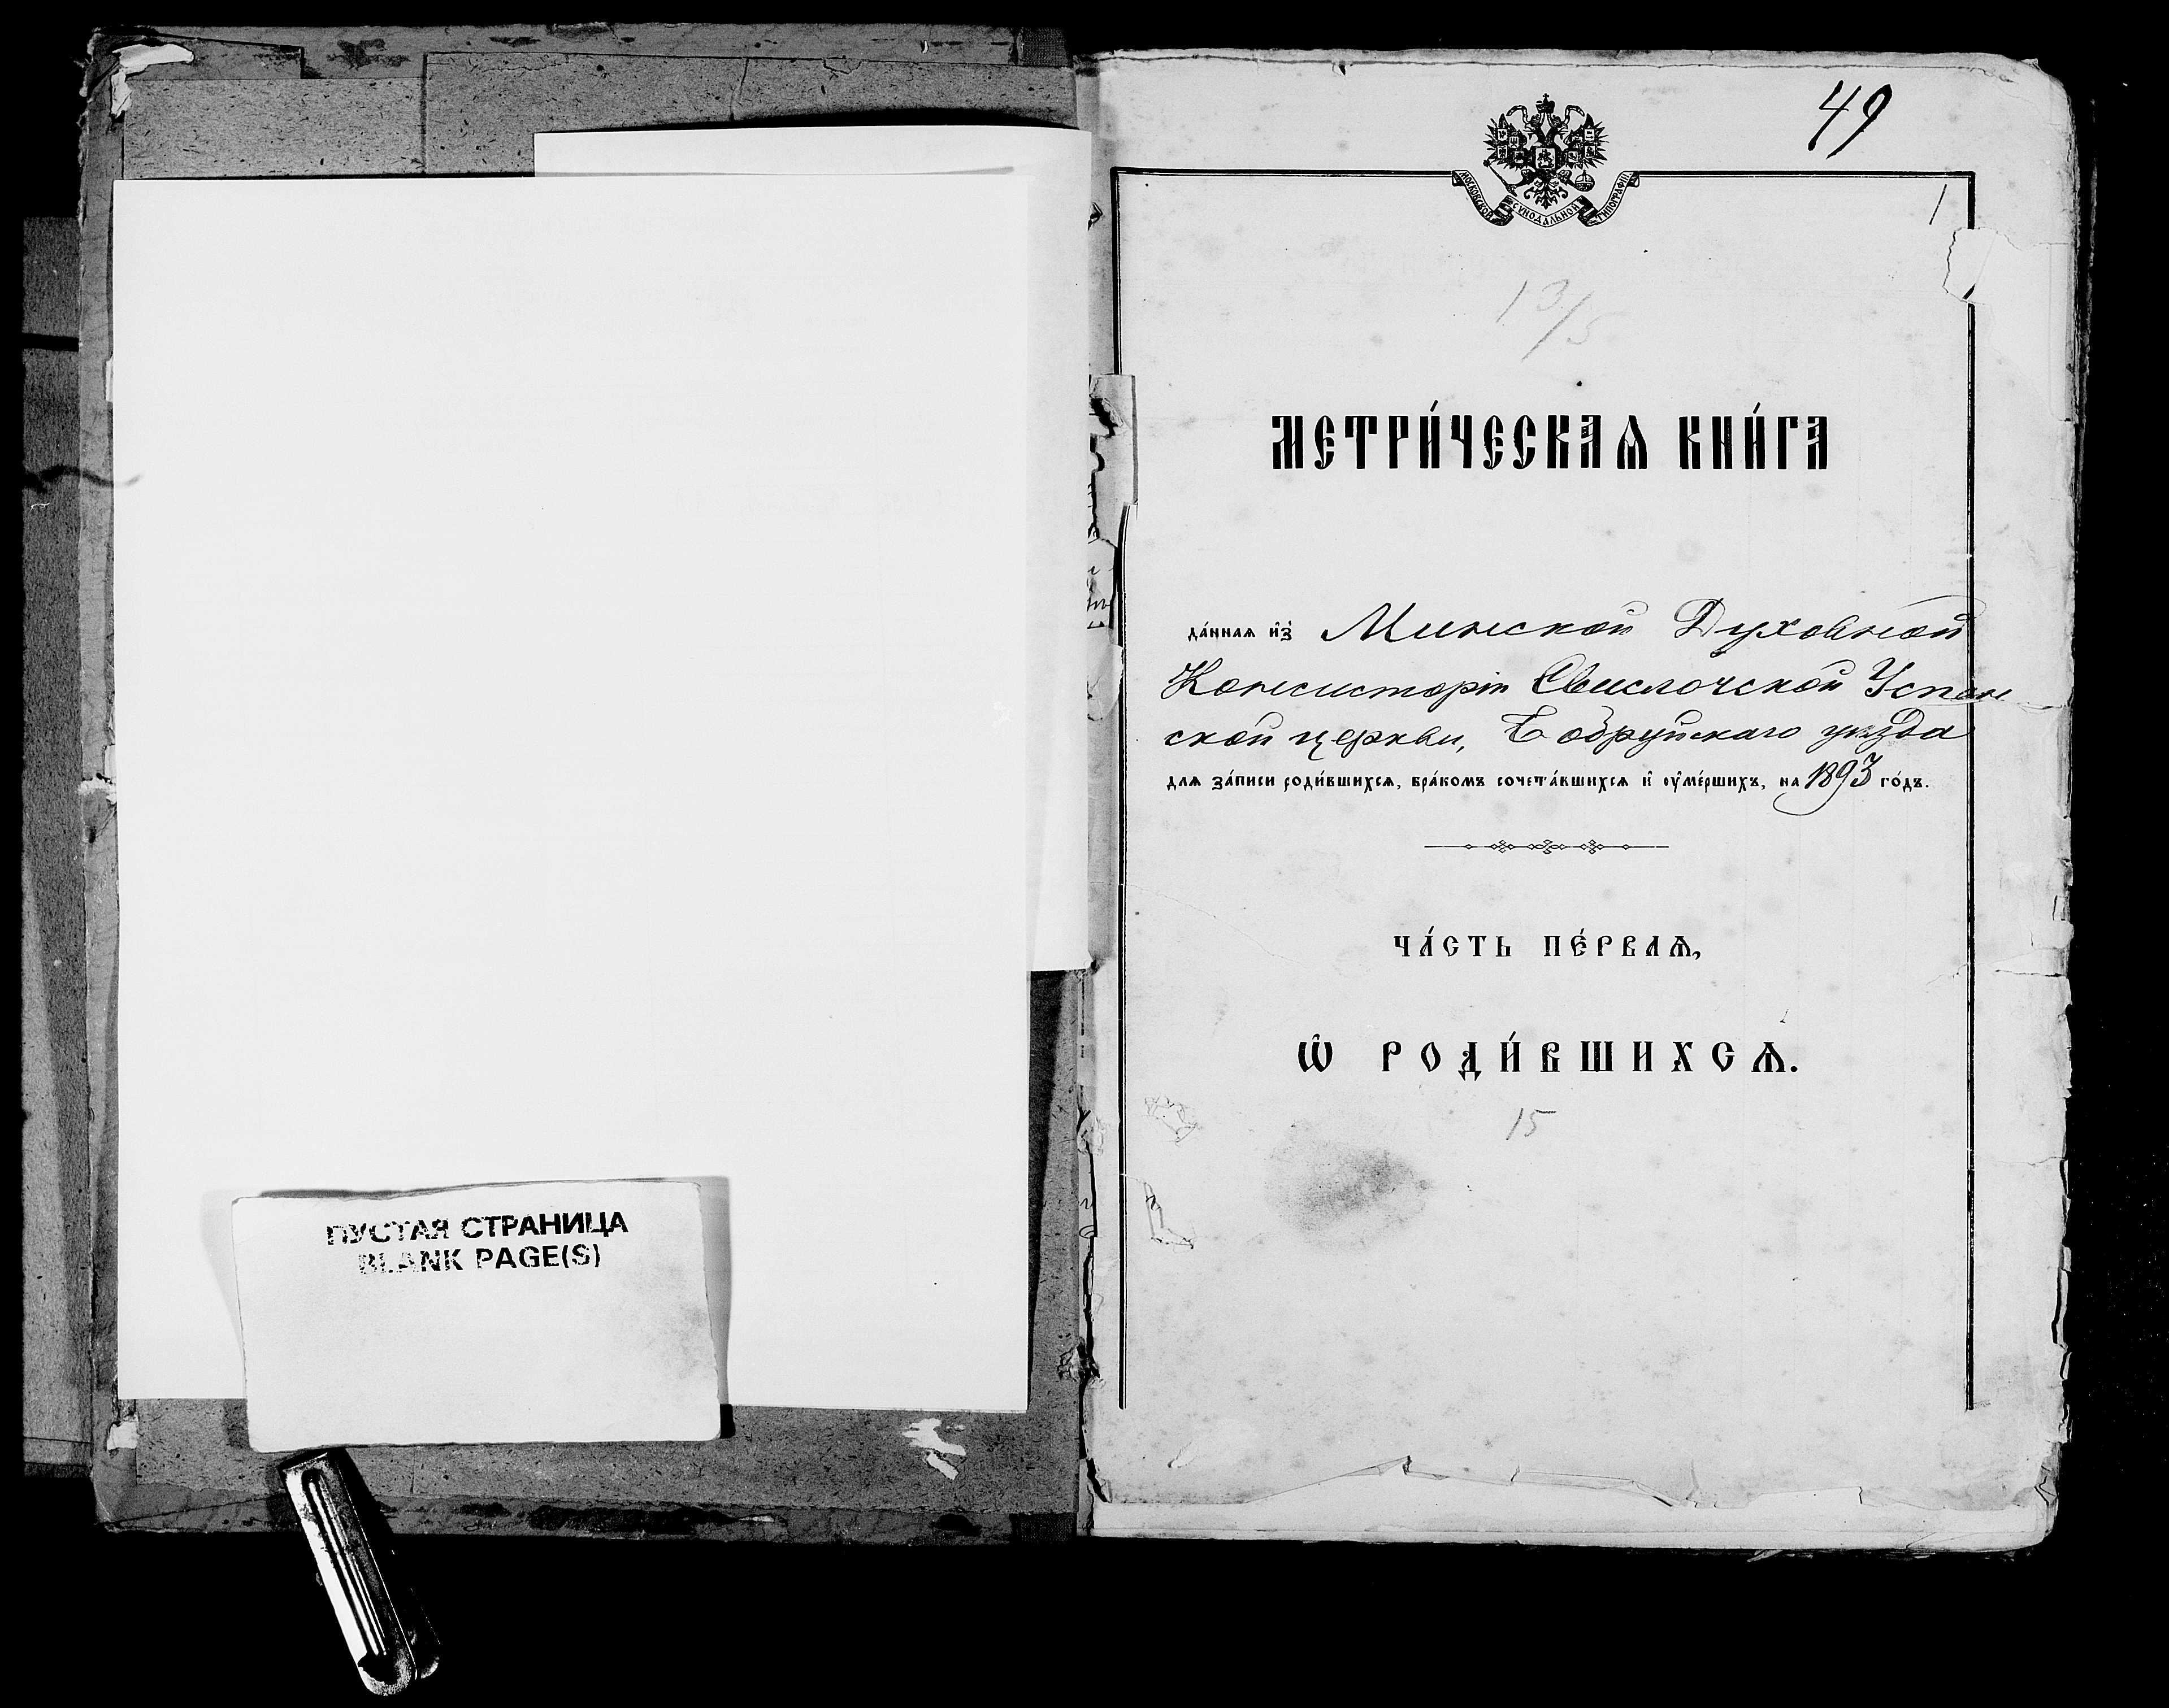 ПУСТАЯ СТРАНИЦА
BLANK PAGE(S)
49
МОСКОВСКОЙ СѴНОДАЛЬНОЙ ТИПОГРАФІИ
1
13/5
МЕТРИ́ЧЕСКАѦ КНИ́ГА
да́ннаѧ и҆з̾ Минской Духовной
Консисторіи Свислочской Успен
ской церкви, Бобруйскаго уѣзда
для за́писи роди́вшихсѧ, бра́комъ сочета́вшихсѧ и҆ ᲂу҆ме́ршихъ, на 1893 го́дъ.
ЧА́СТЬ ПЕ́РВАѦ,
Ѡ҆ РОДИ́ВШИХСѦ.
15